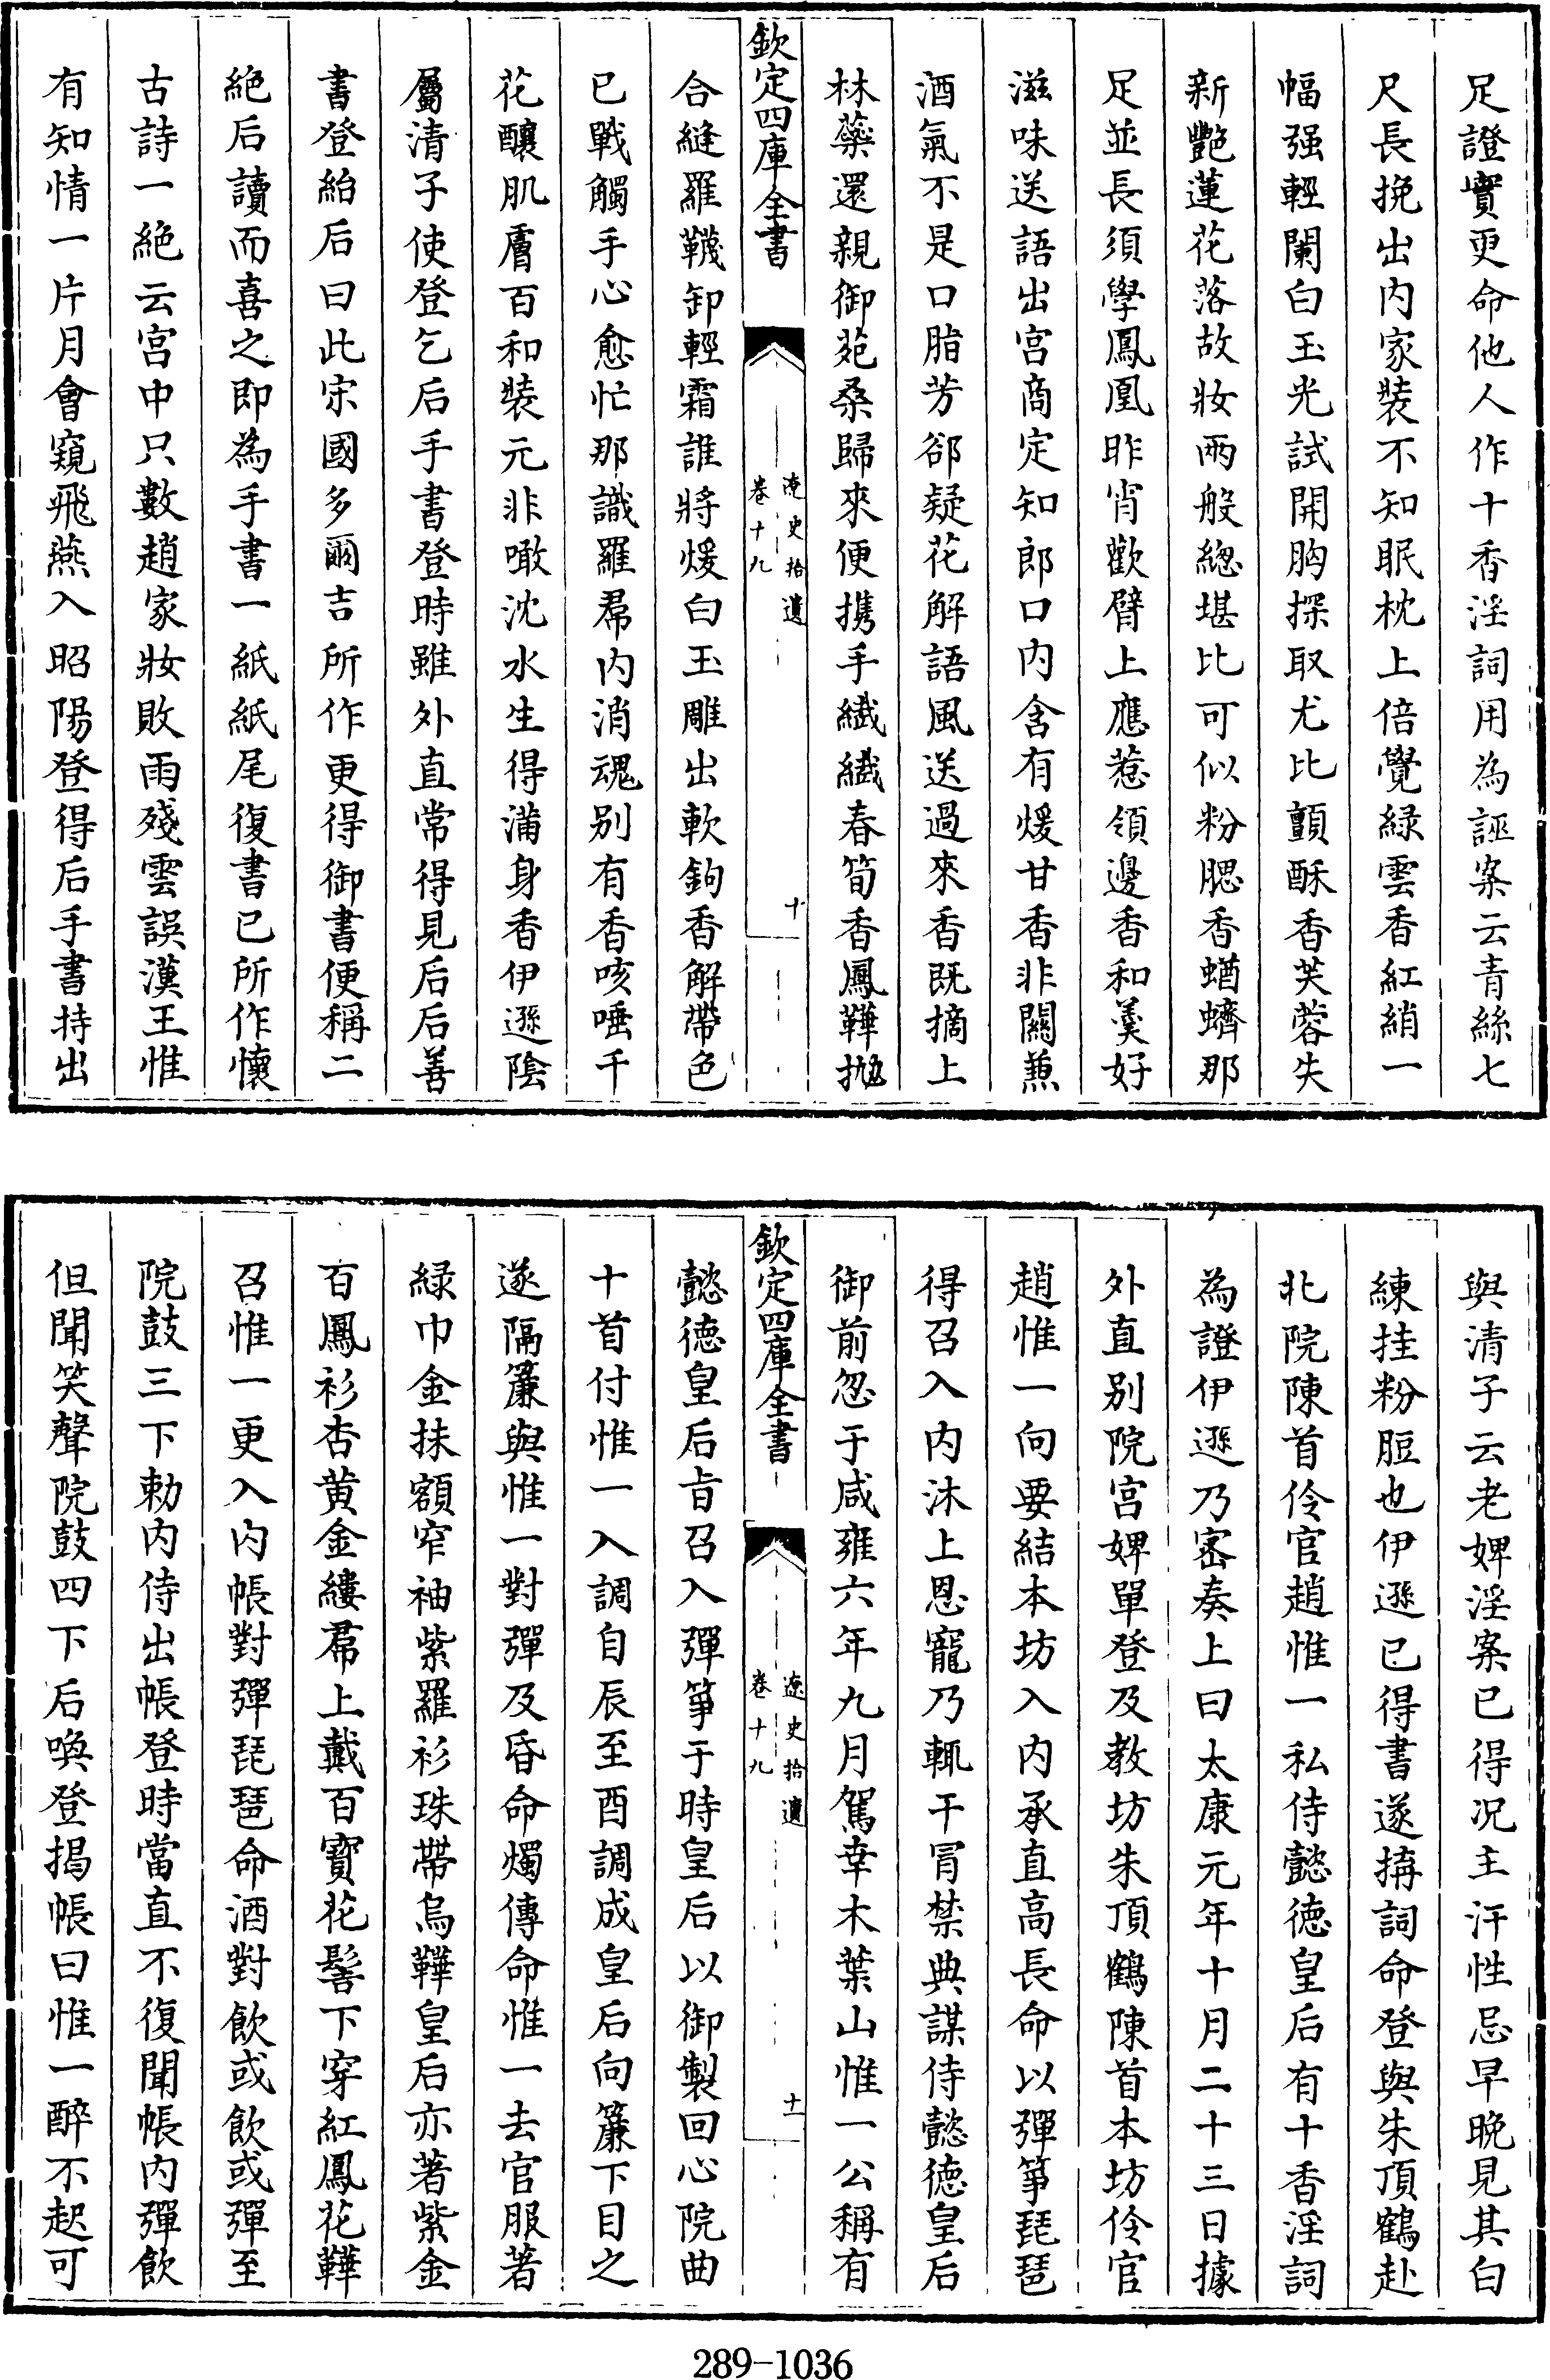 足證實更命他人作十香淫詞用為誣案云青絲七
尺長挽出内家裝不知眠枕上倍覺緑雲香紅綃一
幅强輕闌白玉光試開胷探取尤比顫酥香芙蓉失
新艷蓮花落故妝兩般緫堪比可似粉腮香蝤蠐那
足並長須學鳳凰昨宵歡臂上應惹領邊香和羹好
滋味送語出宫商定知郎口内含有煖甘香非關兼
酒氣不是口脂芳郤疑花解語風送過來香既摘上
林蘂還親御苑桑歸來便携手纖纖春筍香鳳鞾抛
欽定四庫全書
遼史拾遺
卷十九
十
合縫羅韈卸輕霜誰將煖白玉雕出軟鉤香解帶色
已戰觸手心愈忙那識羅帬内消魂别有香咳唾千
花釀肌膚百和裝元非噉沈水生得滿身香伊遜陰
屬清子使登乞后手書登時雖外直常得見后后善
書登紿后曰此宋國多爾吉所作更得御書便稱二
絶后讀而喜之即為手書一紙紙尾復書已所作懷
古詩一絶云宫中只數趙家妝敗雨殘雲誤漢王惟
有知情一片月會窺飛燕入昭陽登得后手書持出
與清子云老婢淫案已得况主汗性忌早晚見其白
練挂粉脰也伊遜已得書遂搆詞命登與朱頂鶴赴
北院陳首伶官趙惟一私侍懿徳皇后有十香淫詞
為證伊遜乃密奏上曰太康元年十月二十三日據
外直别院宫婢單登及教坊朱頂鶴陳首本坊伶官
趙惟一向要結本坊入内承直高長命以彈箏琵琶
得召入内沐上恩寵乃輒干冒禁典謀侍懿徳皇后
御前忽于咸雍六年九月駕幸木葉山惟一公稱有
欽定四庫全書
遼史拾遺
卷十九
十一
懿徳皇后㫖召入彈箏于時皇后以御製回心院曲
十首付惟一入調自辰至酉調成皇后向簾下目之
遂隔簾與惟一對彈及昏命燭傳命惟一去官服著
緑巾金抹額窄袖紫羅衫珠帶烏鞾皇后亦著紫金
百鳳衫杏黄金縷帬上戴百寳花髻下穿紅鳳花鞾
召惟一更入内帳對彈琵琶命酒對飲或飲或彈至
院鼓三下勅内侍出帳登時當直不復聞帳内彈飲
但聞笑聲院鼓四下后喚登揭帳曰惟一醉不起可
289-1036